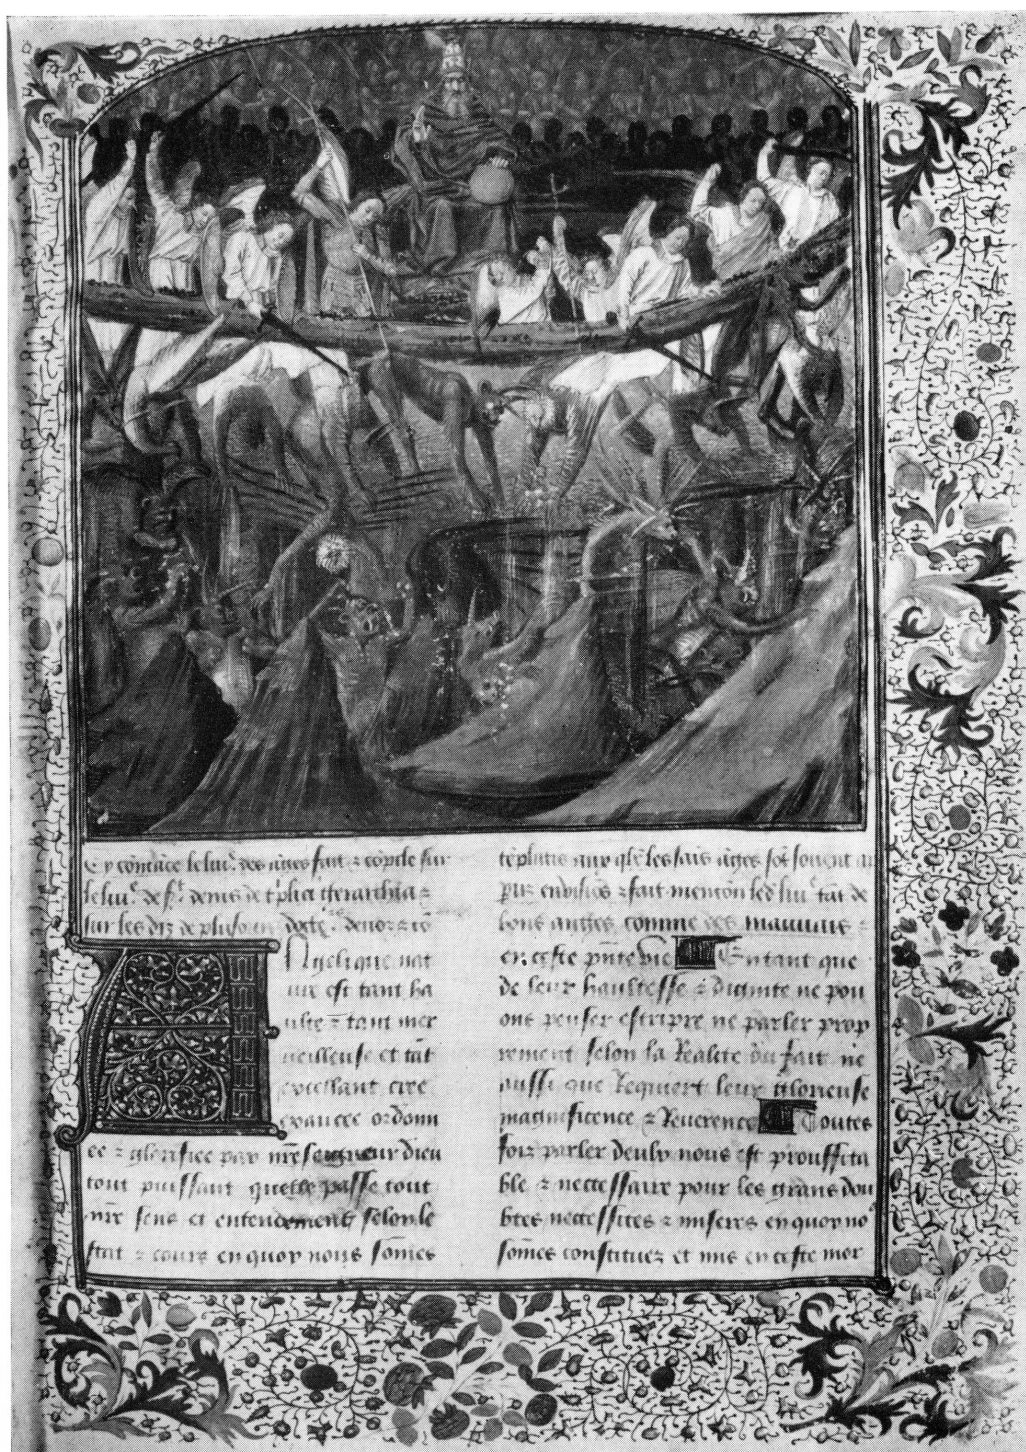 Cy cōmāce le liu. des āges fait ⁊ cōpile sur
le liu. de s. denis de t̄plici iherarchia ⁊
sur les diz de
Angelique nat
ure est tant ha
ulte ⁊ tant mer
ueilleuse et tāt
excellant cree
exaucee ordōnn
ee ⁊ glorifiee par nr̄e seigneur dieu
tout puissant quelle passe tout
nr̄e sens et entendement selon le
stat ⁊ cours en quoy nous sōmes
les sais āges sōt souuent
fait mencōn led. liu. tāt de
bons anges comme des mauuais ⁊
en ceste pn̄te vie En tant que
de leur haultesse ⁊ dignite ne pou
ons penser escripre ne parler prop
rement selon la Realite du fait ne
aussi que Requiert leur glorieuse
magnificence ⁊ Reuerence Toutes
foiz parler deulx nous est prouffita
ble ⁊ necessaire pour les grans dou
btes necessites ⁊ miseres en quoy no⁹
sōmes constituez et mis en ceste mor